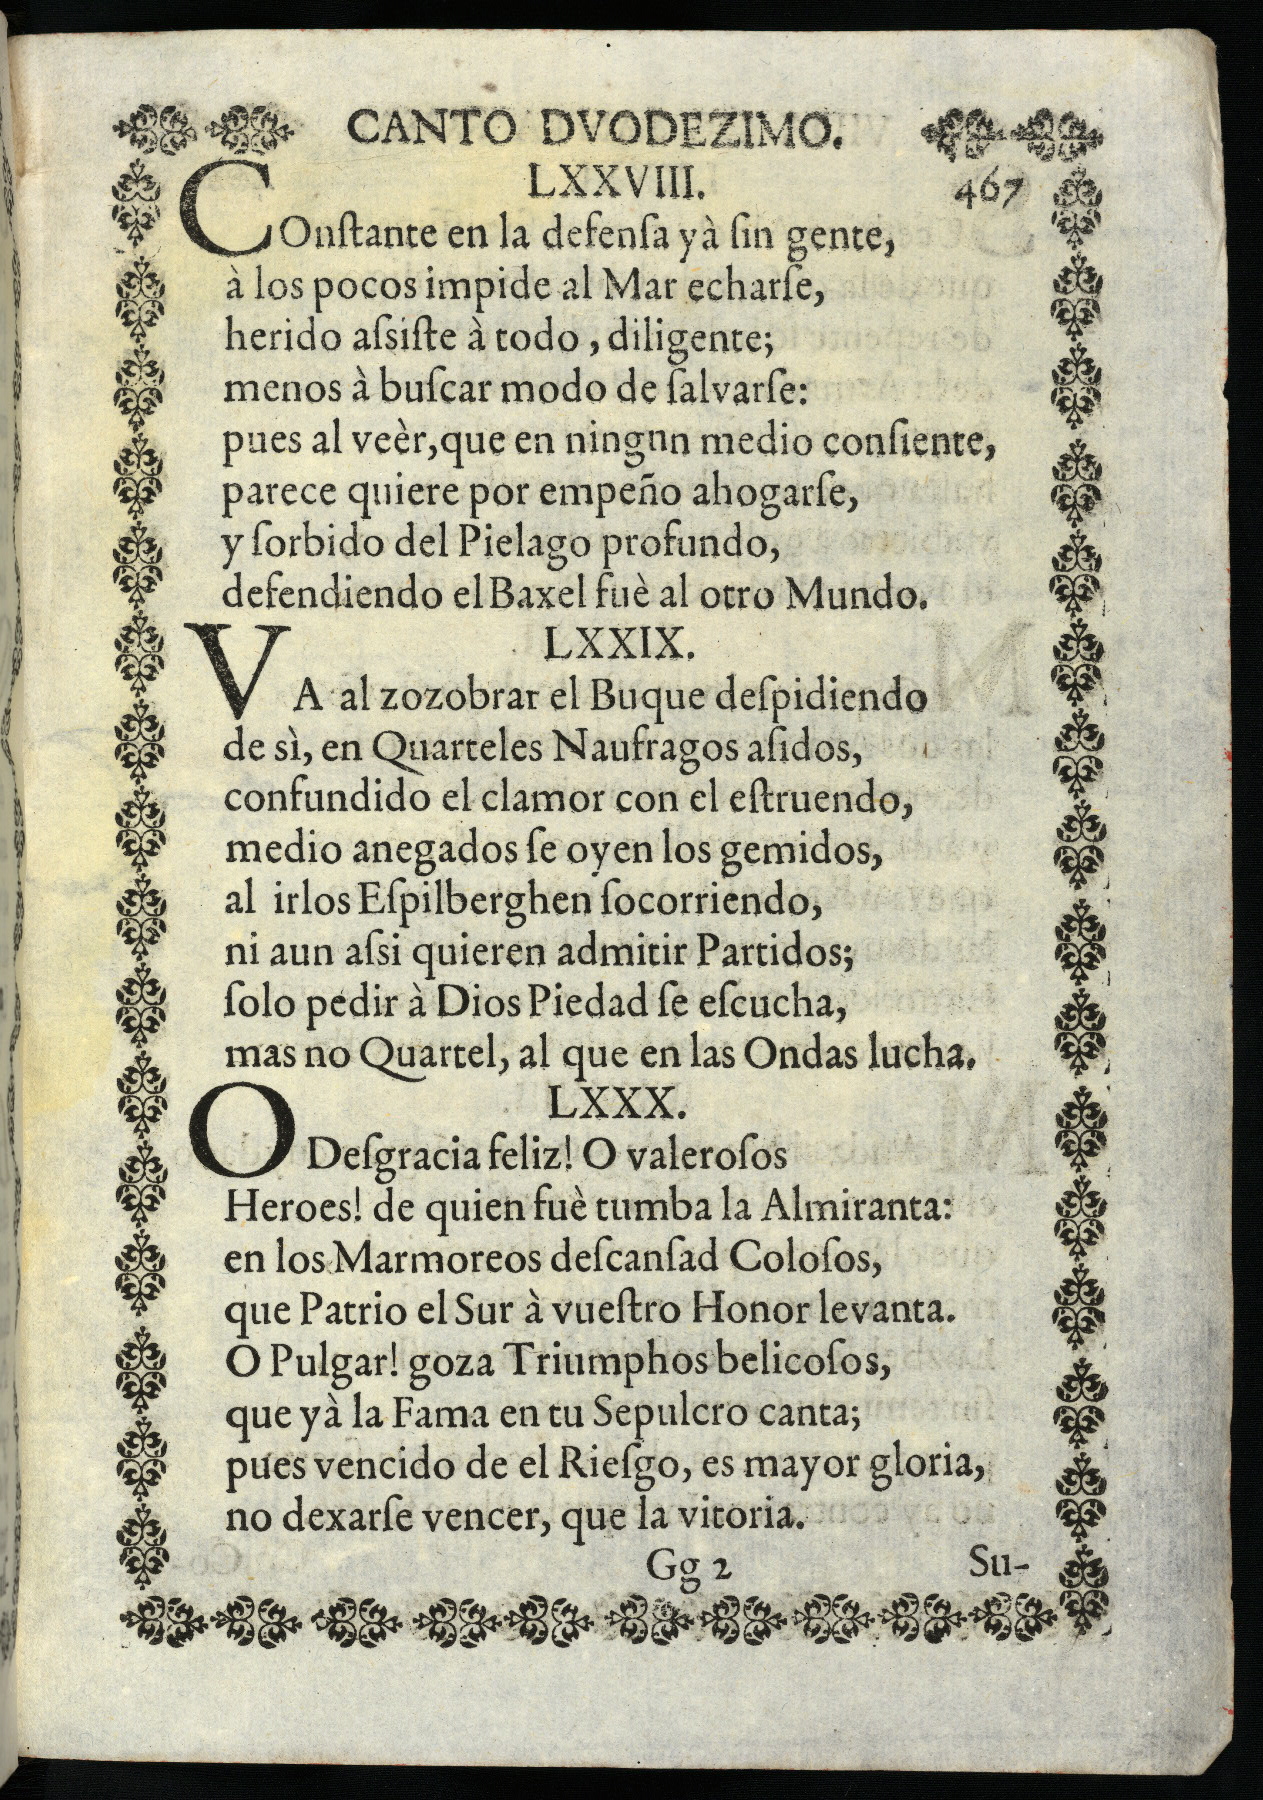 CANTO DVODEZIMO.
LXXVIII. 467
COnſtante en la defenſa yà ſin gente,
à los pocos impide al Mar echarſe,
herido aſsiſte à todo, diligente;
menos à buſcar modo de ſalvarſe:
pues al veèr, que en ningnn medio conſiente,
parece quiere por empeño ahogarſe,
y ſorbido del Pielago profundo,
defendiendo el Baxel fuè al otro Mundo.
LXXIX.
VA al zozobrar el Buque deſpidiendo
de sì, en Quarteles Naufragos aſidos,
confundido el clamor con el eſtruendo,
medio anegados ſe oyen los gemidos,
al irlos Eſpilberghen ſocorriendo,
ni aun aſsi quieren admitir Partidos;
ſolo pedir à Dios Piedad ſe eſcucha,
mas no Quartel, al que en las Ondas lucha.
LXXX.
O Deſgracia feliz! O valeroſos
Heroes! de quien fuè tumba la Almiranta:
en los Marmoreos deſcanſad Coloſos,
que Patrio el Sur à vueſtro Honor levanta.
O Pulgar! goza Triumphos belicoſos,
que yà la Fama en tu Sepulcro canta;
pues vencido de el Rieſgo, es mayor gloria,
no dexarſe vencer, que la vitoria.
Gg 2 Su-